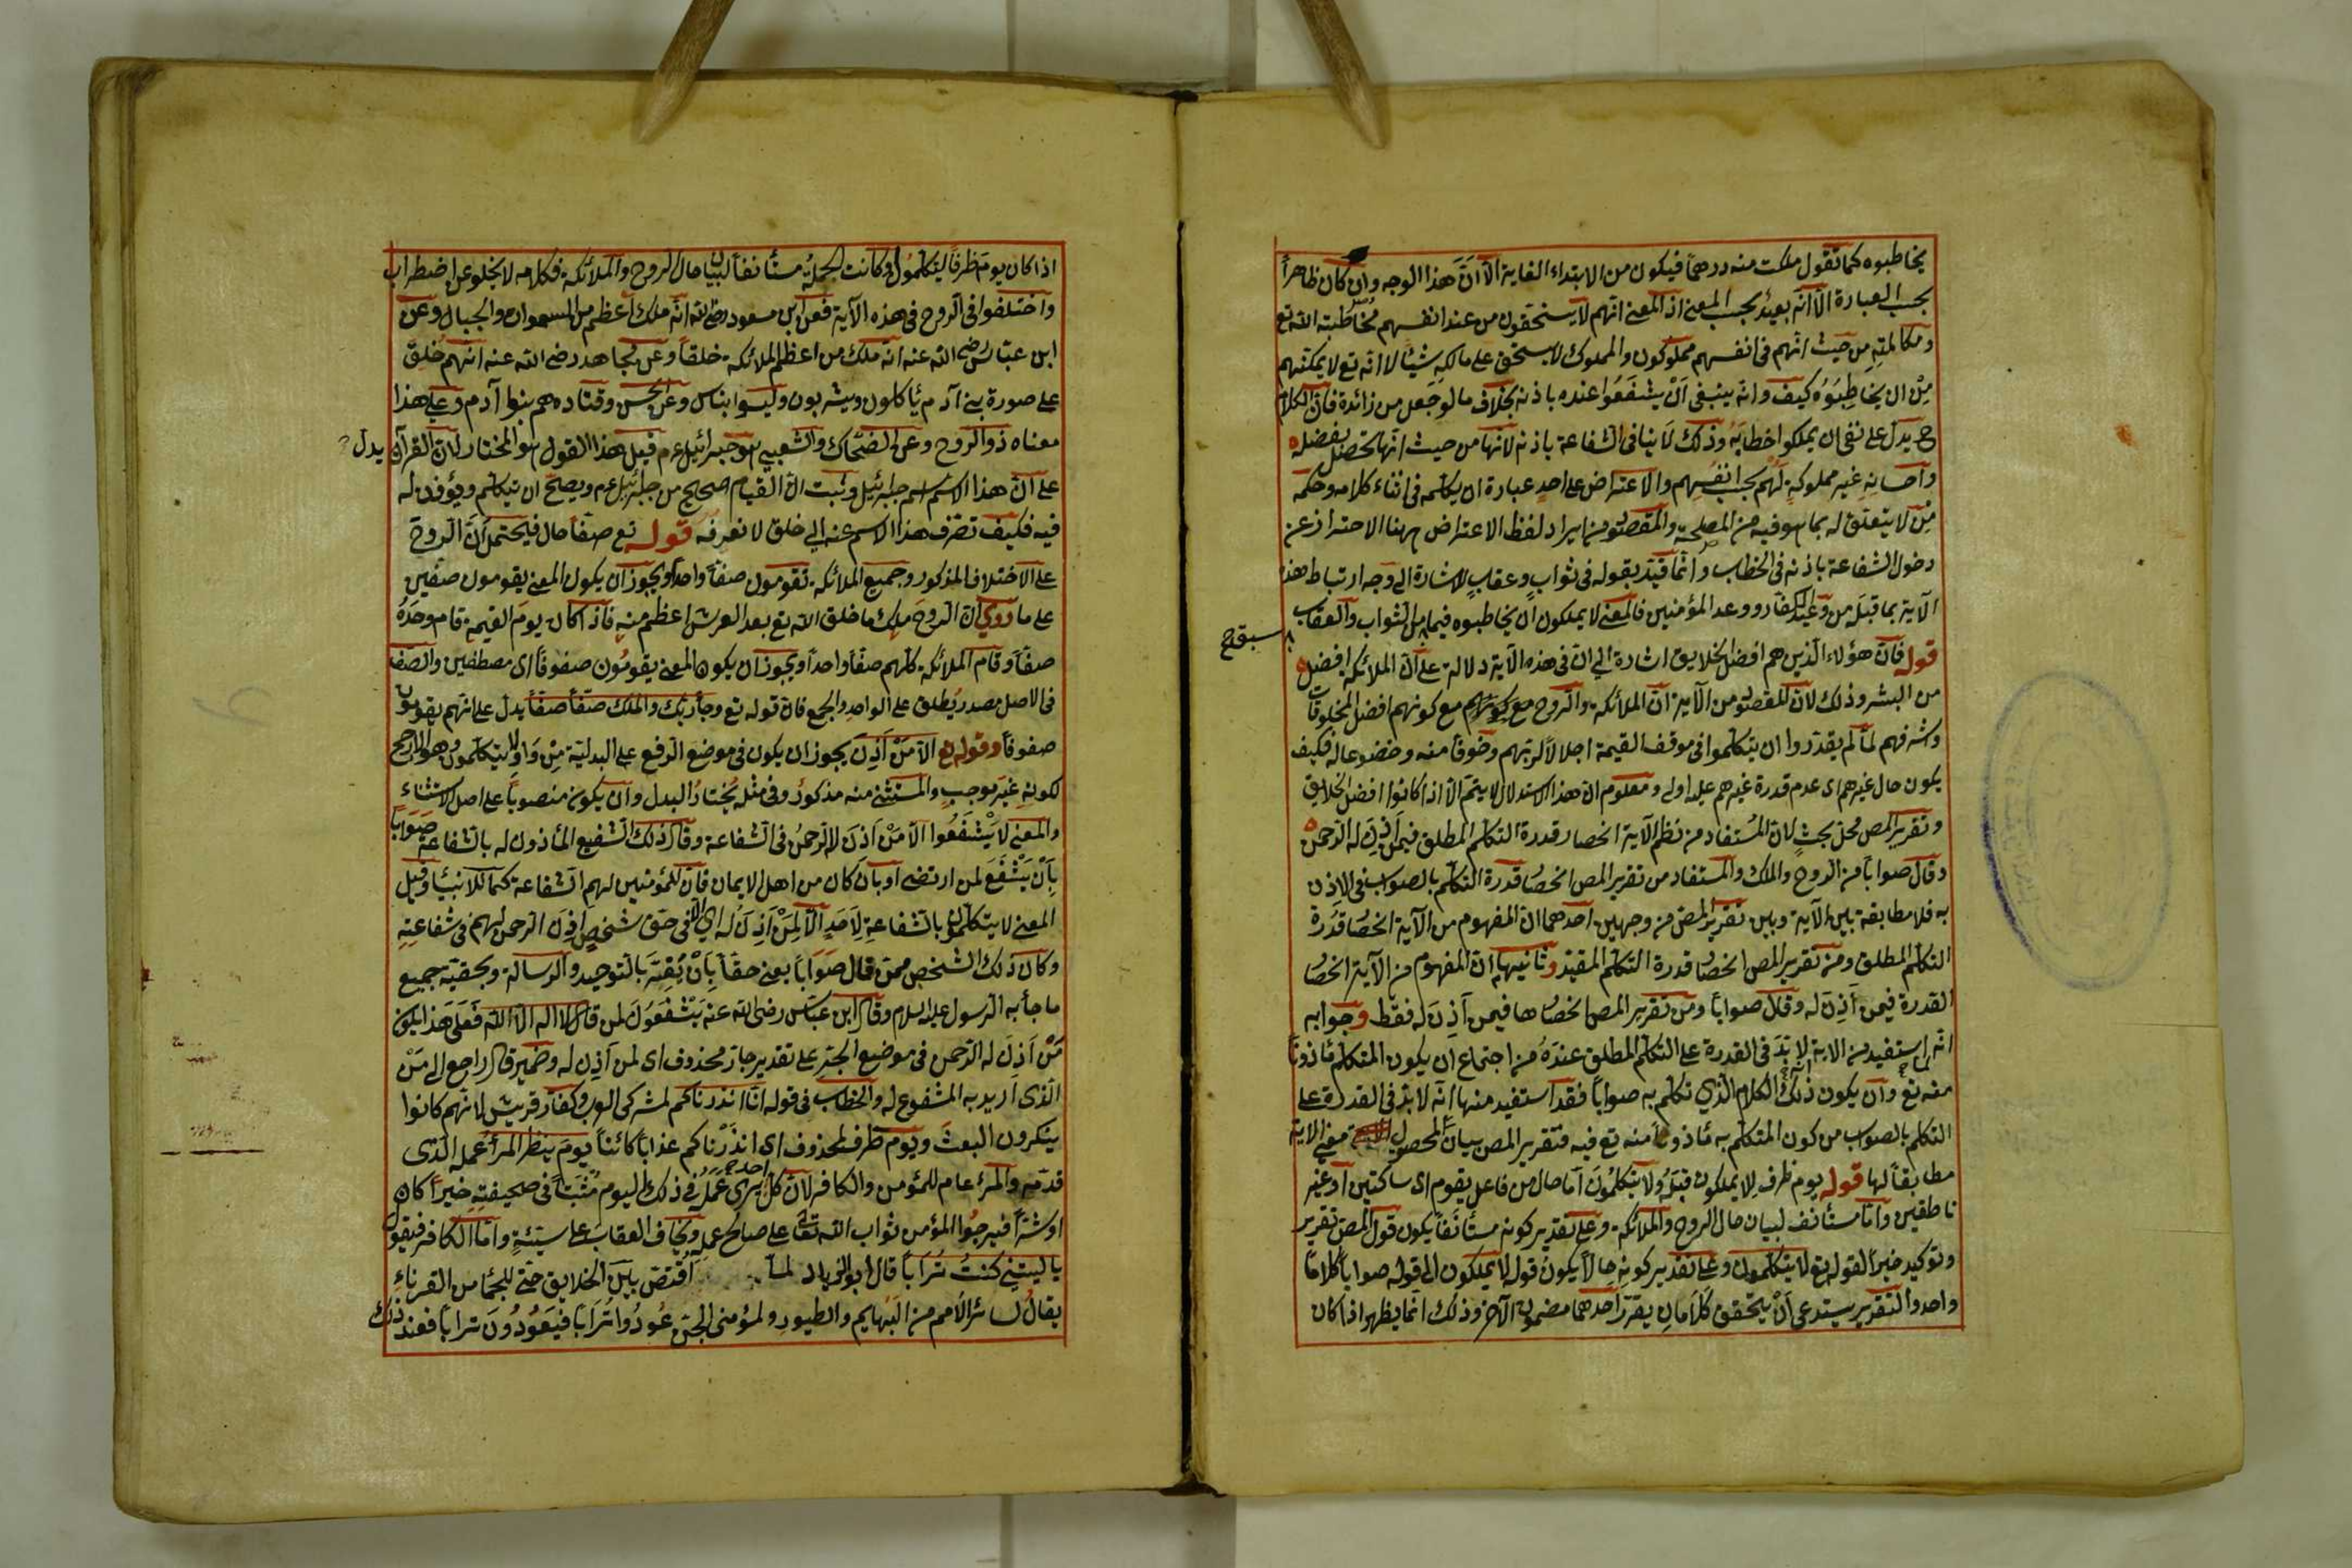 يخاطبوه كما تقول ملكت منه درهما فيكون من لابتداء الغاية الا ان هذا الوجه وان كان ظاهرا
بحسب العبارة الا انه بعيد بحسب المعنى اذ المعنى انهم لا يستحقون من عند انفسهم مخاطبته الله تع
ومكالمته من حيث انهم فى انفسهم مملوكون والمملوك لا يستحق على مالكه شيئا لا انه تع لا يمكنهم
مِنْ ان يخاطبوه كيف وانه ينبغى اَنْ يشفعوا عنده باذنه بخلاف ما لو جعل من زائدة فان الكلام
ح يدل على نفى ان يملكوا خطابه وذلك لا ينافى الشفاعة باذنه لانها من حيث انها تحصل بفضله
واحسانه غير مملوكةٍ لهم بحسب انفسهم والاعتراض على احدٍ عبارة ان يكلمه فى اثناء كلامه وحكمه
مَنْ لا يتعلق له بما هو فيه من المصلحة والمقصود من ايراد لفظ الاعتراض ههنا الاحتراز عن
دخول الشفاعة باذنه فى الخطاب وانما قيد بقوله فى ثوابٍ وعقابٍ للاشارة الى وجه ارتباط هذه
الآية بما قبلَه من وعيد الكفار ووعد المؤمنين فالمعنى لا يملكون ان يخاطبوه فيما من الثواب والعقاب
سبق ح
قوله فان هؤلاء الذين هم افضل الخلايق اشارة الى ان فى هذه الآية دلالة على ان الملائكة افضل
من البشر وذلك لان المقصود من الآية ان الملائكة والروح مع كونهم افضل المخلوقات
وشرفهم لما لم يقدروا ان يتكلموا فى موقف القيمة اجلالا لربهم وخوفا منه وخضوعا له فكيف
يكون حال غيرهم اى عدم قدرة غيرهم عليه اولى ومعلوم ان هذا الاستدلال لا يتم الا اذا كانوا افضل الخلايق
وتقرير المص محل بحثٍ لان المُستفاد من نظم الآية انحصار قدرة التكلم المطلق فيمن اَذِنَ له الرحمن
وقال صوابا من الروح والملك والمستفاد من تقرير المص انحصار قدرة التكلم بالصواب فى الاِذن
به فلا مطابقة بين الآية وبين تقرير المص من وجهين احدهما ان المفهوم من الآية انحصار قدرة
التكلم المطلق ومن تقرير المص انحصار قدرة التكلم المقيد وثانيهما ان المفهوم من الآية انحصار
القدرة فيمن اَذِنَ له وقال صوابا ومن تقرير المص انحصارها فيمن اَذِنَ له فقط وجوابه
انه لما استفيد من الاية لا بدّ فى القدرة على التكلم المطلق عندَهُ من اجتماع ان يكون المتكلم مأذونا
منه تع وان يكون ذلك الكلام الذي تكلم به صوابا فقد استفيد منها انه لا بدّ فى القدرة على
التكلم بالصواب من كون المتكلم به مأذونا منه تع فيه فتقرير المص بيان لمحصول معنى الاية
مطابقا لها قوله يوم ظرف لِلا يملكون قبلَه ولا يتكلمُونَ اما حال من فاعل يقوم اى ساكتين او غير
ناطقين واما مستأنف لبيان حال الروح والملائكة وعلى تقدير كونه مستأنفا يكون قول المص تقرير
وتوكيد خبرا لقوله تع لا يتكلمون وعلى تقدير كونه حالا يكون قوله لا يملكون الى قوله صوابا كلامًا
واحدا والتقرير يستدعى اَنْ يتحقق كلامان يقرر احدهما مضمون الآخر وذلك انما يظهر اذا كان
اذا كان يوم ظرفا ليتكلمُون او كانت الجملة مستأنفا لبيان حال الروح والملائكة فكلامه لا يخلو عن اضطراب
واختلفوا فى الروح فى هذه الآية فعن ابن مسعود رضى الله انه ملك اعظم من السموات والجبال وعن
ابن عباس رضى الله عنه انه ملك من اعظم الملائكة خلقا وعن مجاهد رضى الله عنه انهم خلق
على صورة بنى آدم يأكلون ويشربون وليسوا بناس وعن الحسن وقتاده هم بنوا آدم وعلى هذا
معناه ذو الروح وعن الضحاك والشعبي هو جبرائيل عم قيل هذا القول هو المختار لان القرآن يدل
على ان هذا الاسم اسم جبرئيل وثبت ان القيام صحيح من جبرئيل عم ويصح ان يتكلم ويؤذن له
فيه فكيف تصرف هذا الاسم عنه الى خلق لا نعرفه قوله تع صفا حال فيحتمل ان الروح
على الاختلاف المذكور وجميع الملائكة تقومون صفا واحدا ويجوز ان يكون المعنى يقومون صفين
على ما روي ان الروحَ ملِك ما خلق الله تع بعد العرش اعظم منه فاذا كان يوم القيمة قام وحدَهُ
صفا وقام الملائكة كلهم صفا واحدا ويجوز ان يكون المعنى يقومُون صفوفا اى مصطفين والصف
فى الاصل مصدر يُطلق على الواحد والجمع فان قوله تع وجأ ربك والملك صفا صفا يدل على انهم يقومون
صفوفا وقوله تع الا مَنْ اَذِنَ يجوز ان يكون فى موضع الرفع على البدلية مِنْ واو لا يتكلمون وهو الارجح
لكونه غيرَ موجبٍ والمستثنى منه مذكورٌ وفى مثله يُختارُ البدل وان يكون منصوبا على اصل الاستثناء
والمعنى لا يَشْفَعُوا الا مَنْ اَذِنَ له الرحمنُ فى الشفاعة وقال ذلك الشفيع المأذون له بالشفاعة صَوَابًا
بِاَنْ يَشْفَعَ لمن ارتضى او بان كان من اهل الايمان فان للمؤمنين لهم الشفاعة كما للانبياء وقيل
المعنى لا يتكلمون بالشفاعةِ لِاَحَدٍ الا لِمَنْ اَذِنَ لَه اى الا فى حق شخصٍ اَذِنَ الرحمن لهم فى شفاعتِهِ
وكان ذلك الشخص ممن قال صَوَابًا يعنى حقا بِاَنْ يُقِرّ بالتوحيد والرسالة وبحقية جميع
ما جأ به الرسول عليه السلام وقال ابن عباس رضى الله عنه يَشْفَعُونَ لمن قال لا اله الا الله فَعَلَى هذا يكون
مَنْ اَذِنَ له الرحمن فى موضع الجر على تقدير جار محذوف اى لمن اَذِنَ له وضمير قال راجع الى مَنْ
الذى اريد به المشفوع له والخطاب فى قوله انا انذرناكم لمشركى العرب وكفار قريش لانهم كانوا
ينكرون البعث ويوم ظرف لمحذوف اى انذَرْناكم عذابا كائنا يومَ ينظر المرأ عمله الذى
قدمه والمرء عام للمؤمن والكافر لان كل احد يرى عَمَلَه فى ذلك اليوم مُثْبَتًا فى صحيفته خيرًا كان
او شرًّا فيرجُوا المؤمن ثواب الله تعَالى على صالح عمله ويخاف العقابَ على سيّئةٍ واما الكافر فيقول
يا ليتني كنتُ تُرَابًا قال ابو الزناد لما اقتصّ بينَ الخلايق حتى للجمّا من القرناء
يقالُ لسائر الاُمم من البَهايم والطيورِ ولمؤمنى الجن عُودُوا تُرَابًا فَيَعُودُونَ ترابا فعند ذلك